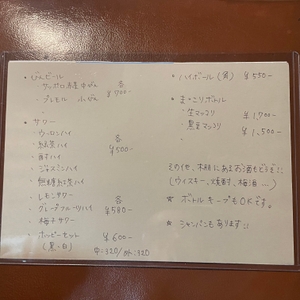 ・びんビール
・サッポロ赤星 中びん
・プレモル 小びん
各 ¥700-
・サワー
・ウーロンハイ
・緑茶ハイ
・ジャスミンハイ
・無糖紅茶ハイ
・レモンサワー
各 ¥500-
・グレープフルーツハイ
・梅干サワー
¥580-
・ホッピーセット
(黒・白)
¥600-
中:320/外:320
・ハイボール(角) ¥550-
・まっこりボトル
・生マッコリ ¥1,700-
・黒豆マッコリ ¥1,500-
その他、木棚にあるお酒もどうぞ!
(ウイスキー、焼酎、梅酒...)
★ ボトルキープもOKです。
★ シャンパンもあります